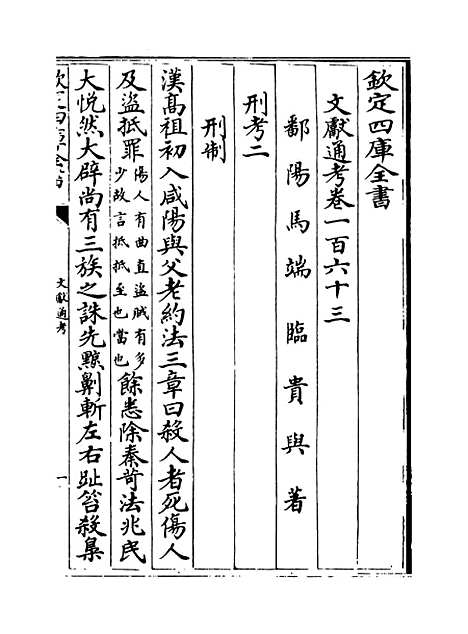 欽定四庫全書
文獻通考卷一百六十三
鄱陽馬端臨貴與著
刑考二
刑制
漢髙祖初入咸陽與父老約法三章曰殺人者死傷人
及盜抵罪傷人有曲直盜贓有多少故言抵抵至也當也餘悉除秦苛法兆民
大悦然大辟尚有三族之誅先黥劓斬左右趾笞殺梟
欽定四庫全書
文獻通考
一